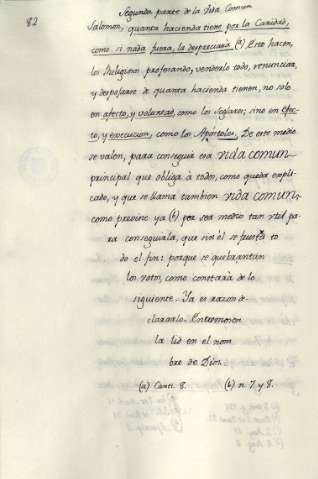 82
Segunda parte de la Vida Comun
Salomon, quanta hacienda tiene por la Caridad,
como si nada fuera, la despreciaria (a) Esto hacen,
los Religiosos profesando, venderlo todo, renunciar,
y desposarse de quanta hacienda tienen, no solo
en afecto, y voluntad, como los seglares; sino en efec-
to, y execucion, como los Apóstoles. De este medio
se valen, para conseguir esa vida comun-
principal que obliga à todo, como queda expli-
cado, y que se llama tambien vida comun,
como previne ya (b) por ser medio tan util pa
ra conseguirla, que sin èl se frustra to
do el fin: porque se quebrantan
los votos, como constarà de lo
siguiente. Ya es razon de-
clararlo. Entremos en
la lid en el nom
bre de Dios.
(a) Cant. 8. (b) n. 7. y 8.